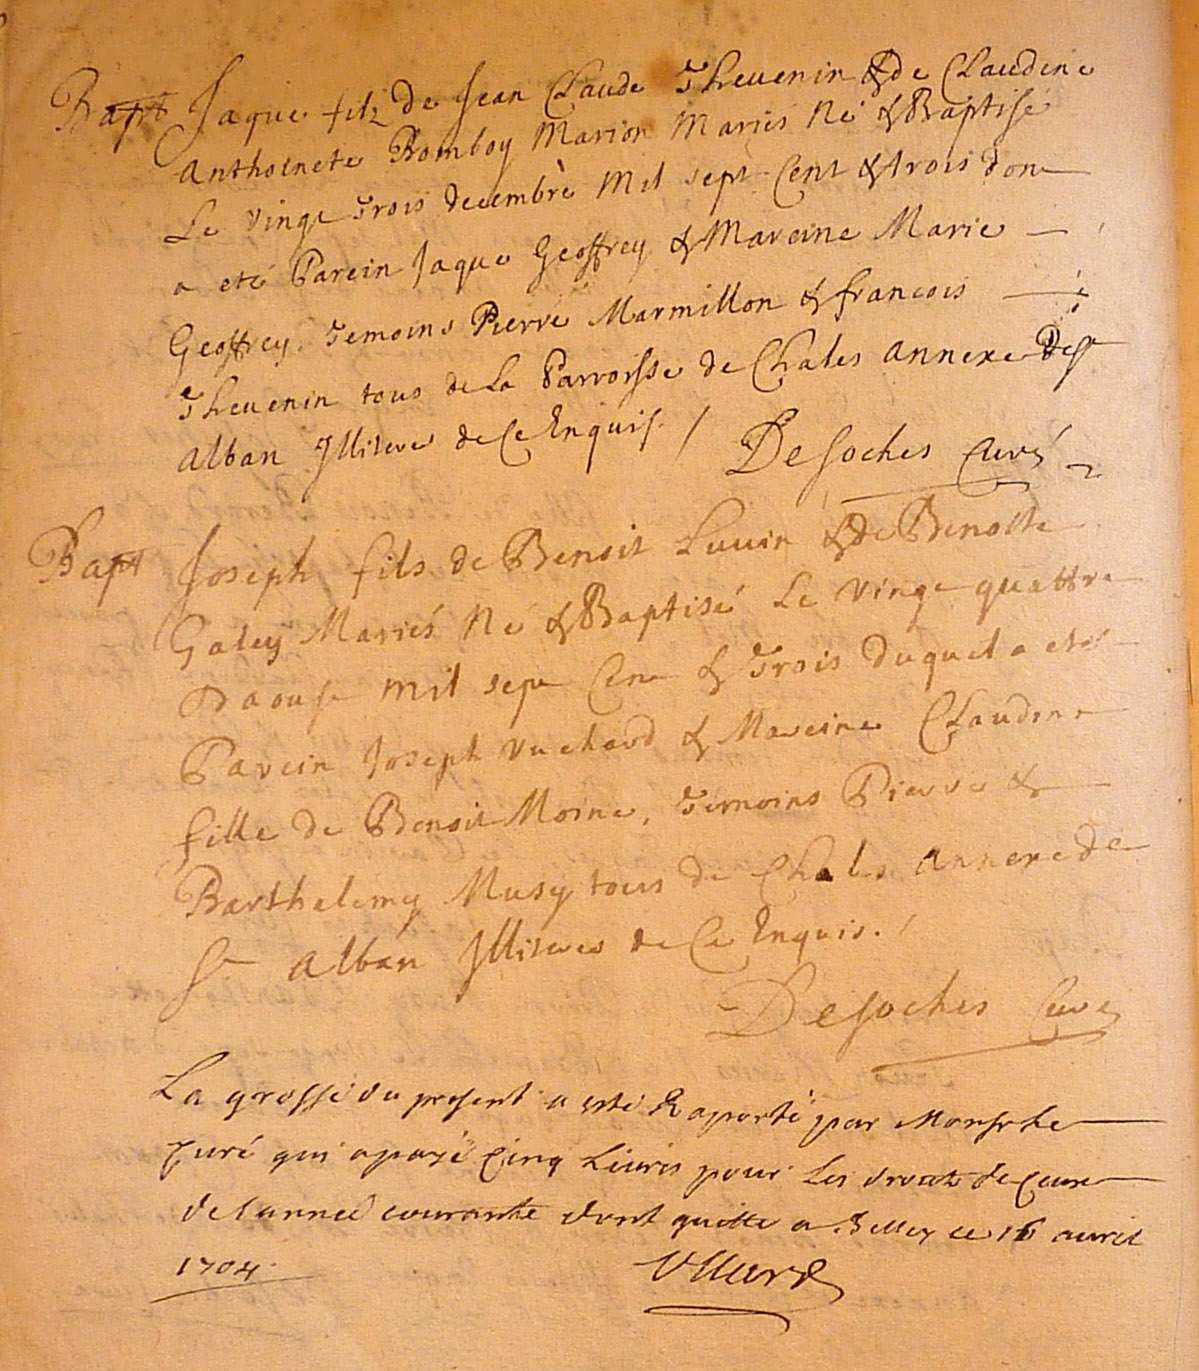 Bapt Jaque filz de Jean Claude Thevenin & de Claudine
Anthoinete Bomboy Marion Mariés Né & Baptisé
Le vingt trois decembre Mil sept Cent & trois don
a eté Parein Jaque Geoffrey & Mareine Marie
Geoffrey. Temoins Pierre Marmillon & francois
Thevenin tous de La Parroisse de Chales annexe De St
Alban Illiteres de Ce Enquis. /
Desoches Curé
Bapt Joseph fils de Benoit Luvin & de Benoite
Galey Mariés Né & Baptisé Le vingt quattre
Daoust Mil sept Cent & Trois duquel a eté
Parein Joseph Vuchard & Mareine Claudine
fille de Benoit Moine, Temoins Pierre &
Barthelemy Musy tous de Chales annexe de
St Alban Illiteres de Ce Enquis. /
Desoches Curé
La grosse du present a esté Raporté par Monsr le
Curé qui a payé Cinq Livres pour Les droits de Ceux
de Lannée courante dont quitte a ce 16 avril
1704